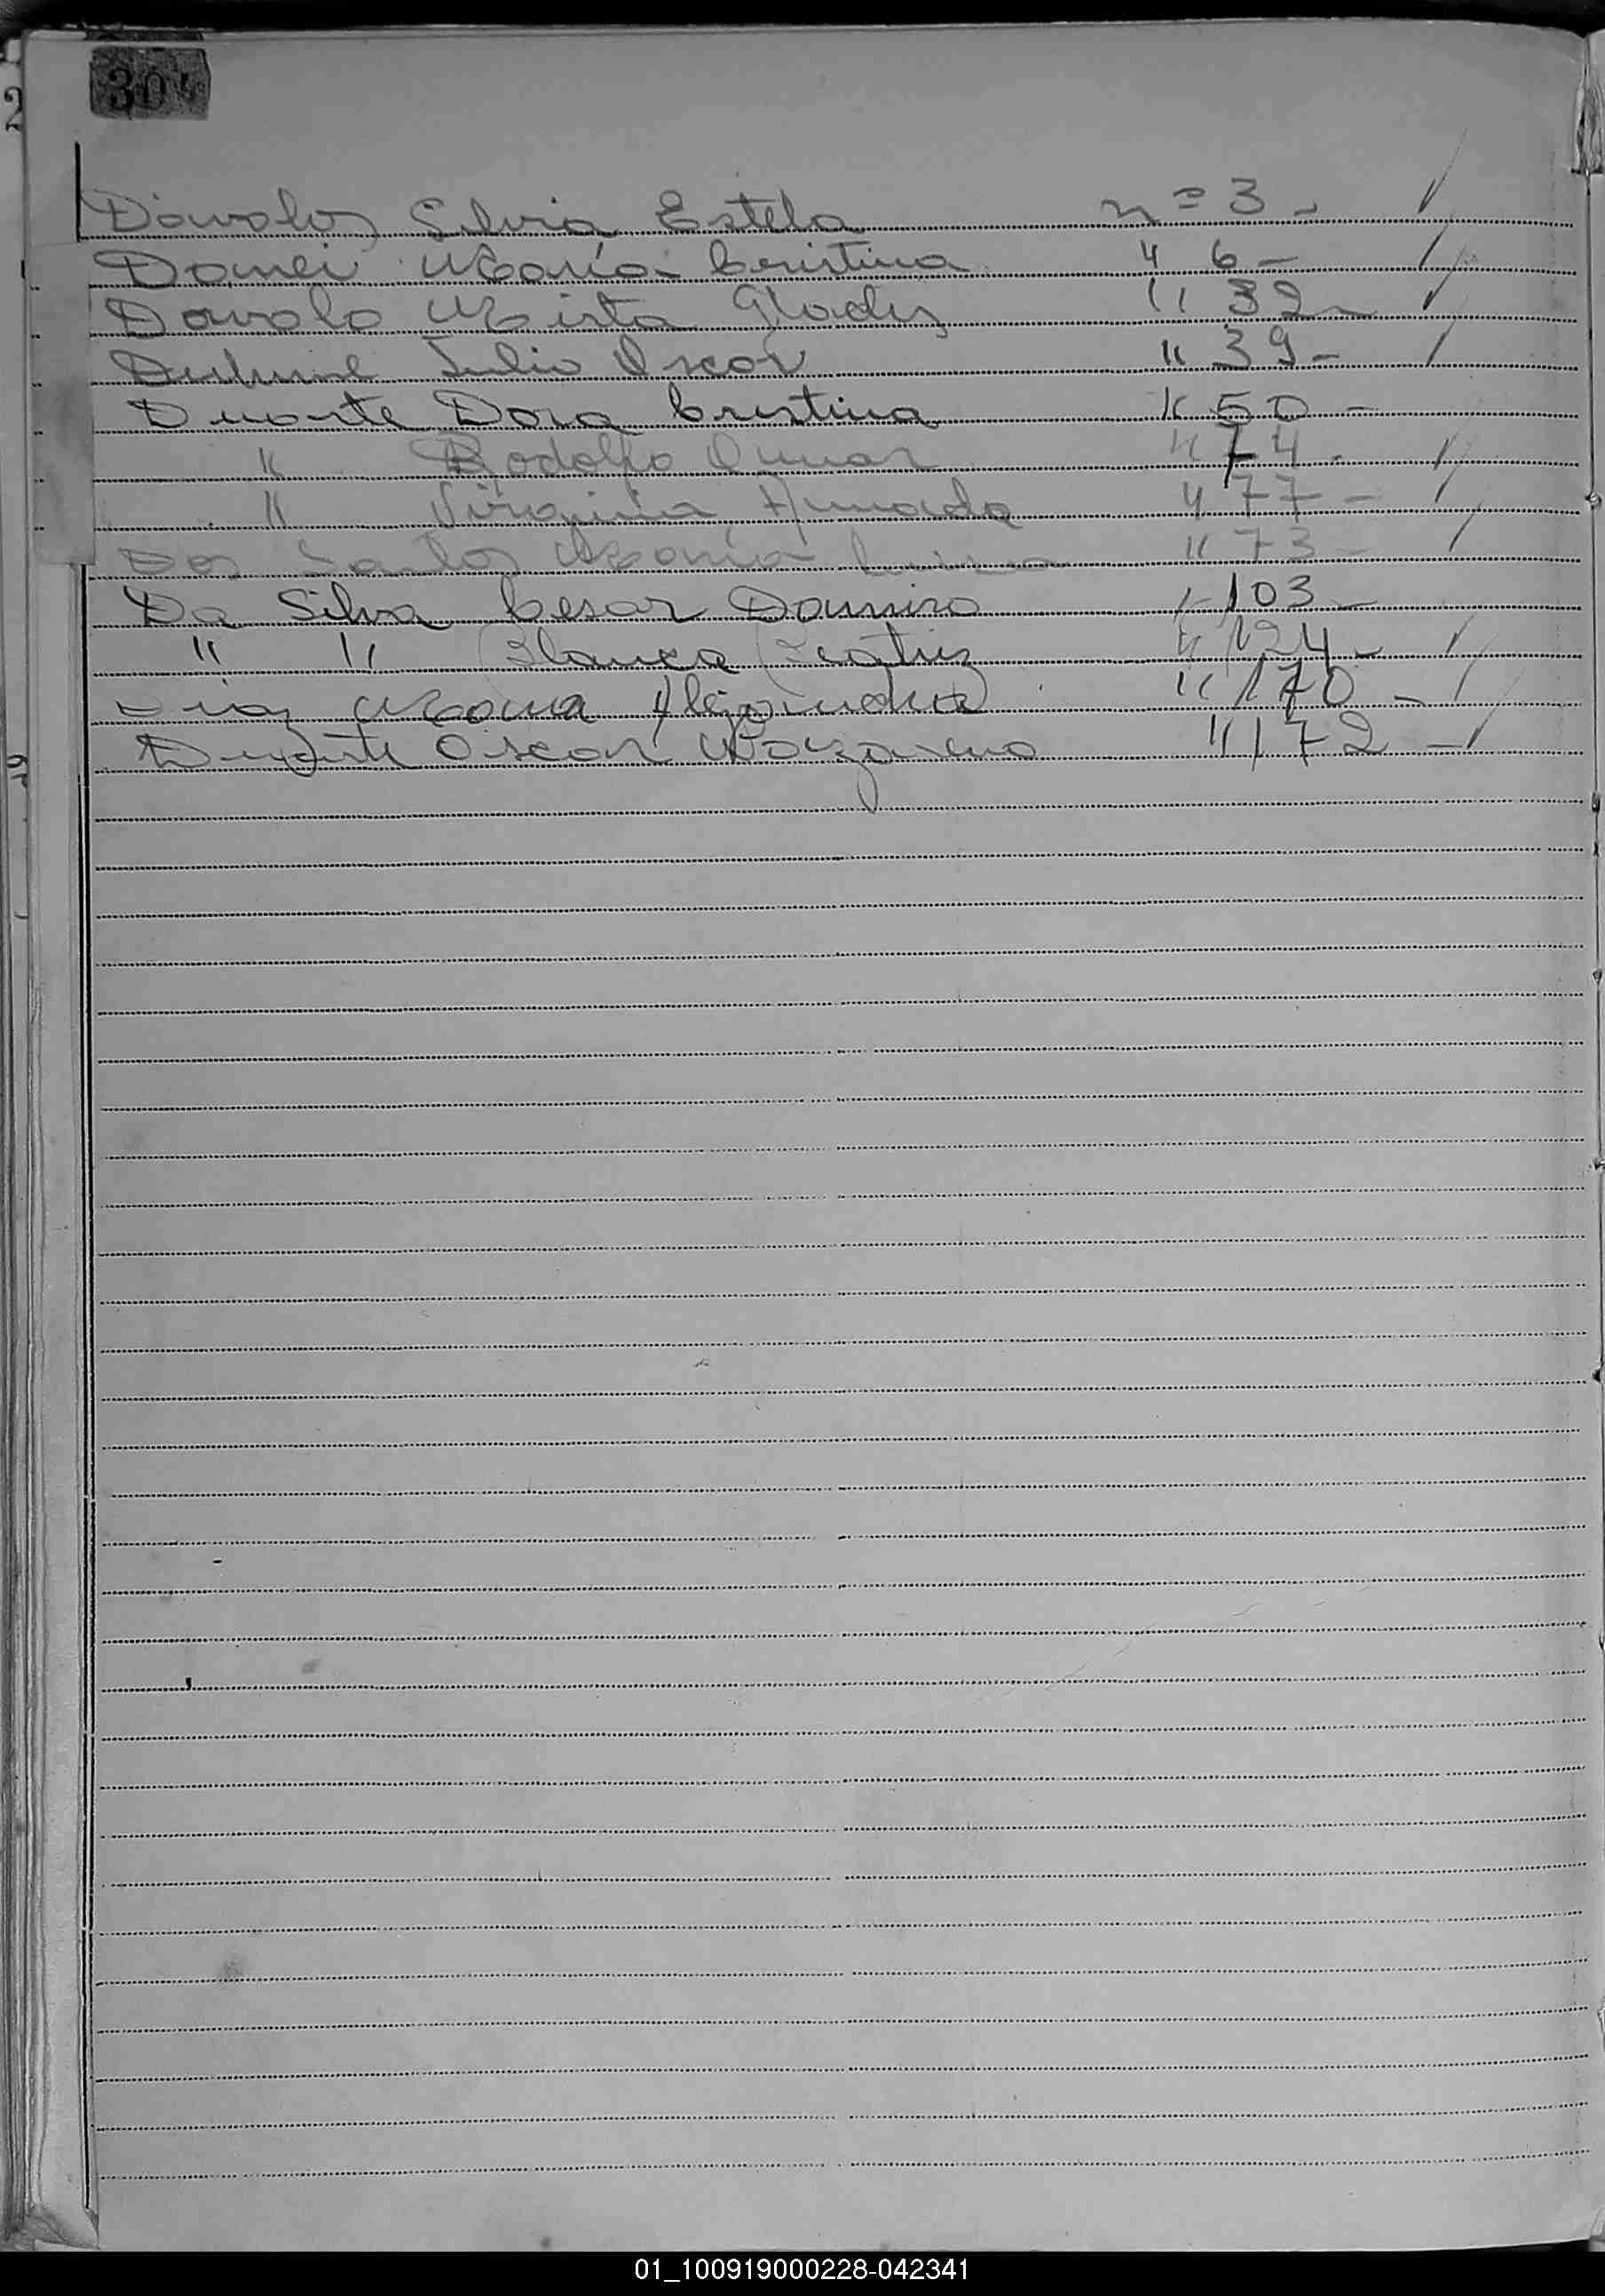 304
Dávalos Silvia Estela n= 3 -
Damei María Cristina " 6 -
Davalo Mirta Gladis " 32 -
Julio Oscar " 39 -
Duarte Dora Cristina " 50 -
" Rodolfo Omar " 74 -
" Virginia Amanda " 77 -
Dos Santos María Luisa " 73 -
Da Silva Cesar Damiro " 103 -
" " Blanca Beatriz " 124 -
Diaz María Alejandra " 170 -
Duarte Oscar Nazareno " 172 -
01_100919000228-042341